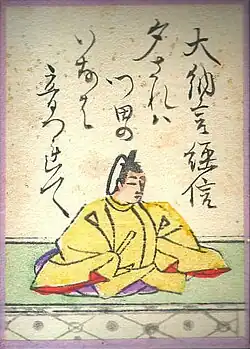 大納言経信
夕されは
門田の
いなは
音つれて